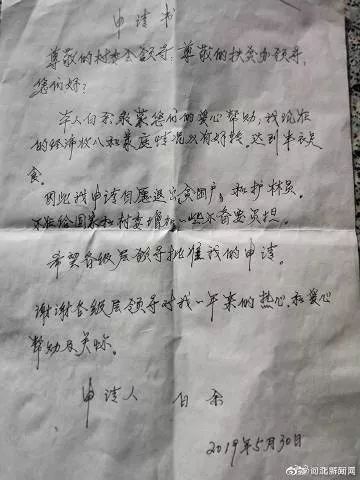 申请书
尊敬的村委会领导:尊敬的扶贫办领导,
您们好?
本人白余承蒙您们的爱心帮助,我现在
的经济收入和家庭情况以有好转。达到丰衣足
食。
因此我申请自愿退出贫困户,和护林员。
不在给国家和村委增加一些不必要负担。
希望各级层领导批准我的申请。
谢谢各级层领导对我一年来的热心和爱心
帮助及关怀。
申请人 白余
2019年5月30日
@河北新闻网